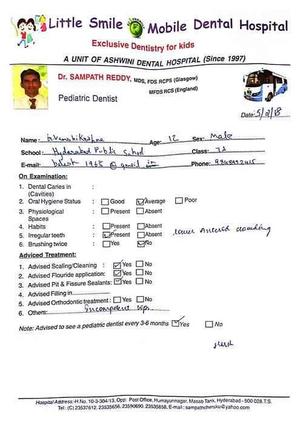 Little Smile Mobile Dental Hospital
Exclusive Dentistry for kids
A UNIT OF ASHWINI DENTAL HOSPITAL (Since 1997)
Dr. SAMPATH REDDY, MDS, FDS RCPS (Glasgow)
MFDS RCS (England)
Pediatric Dentist
Date: 5/8/18
Name: Age: 12 Sex: Male
School: Hyderabad Public School Class:
E-mail: Phone:
On Examination:
1. Dental Caries in :
(Cavities)
2. Oral Hygiene Status : Good Average Poor
3. Physiological : Present Absent
Spaces
4. Habits : Present Absent
5. Irregular teeth : Present Absent lower anterior crowding
6. Brushing twice : Yes No
Adviced Treatment:
1. Advised Scaling/Cleaning : Yes No
2. Advised Flouride application: Yes No
3. Advised Pit & Fissure Sealants: Yes No
4. Advised Filling in
5. Advised Orthodontic treatment : Yes No
6. Others: Incompetent lips
Note: Advised to see a pediatric dentist every 3-6 months Yes No
Hospital Address: H.No. 10-3-304/13, Opp. Post Office, Humayunnagar, Masab Tank, Hyderabad - 500 028 T.S.